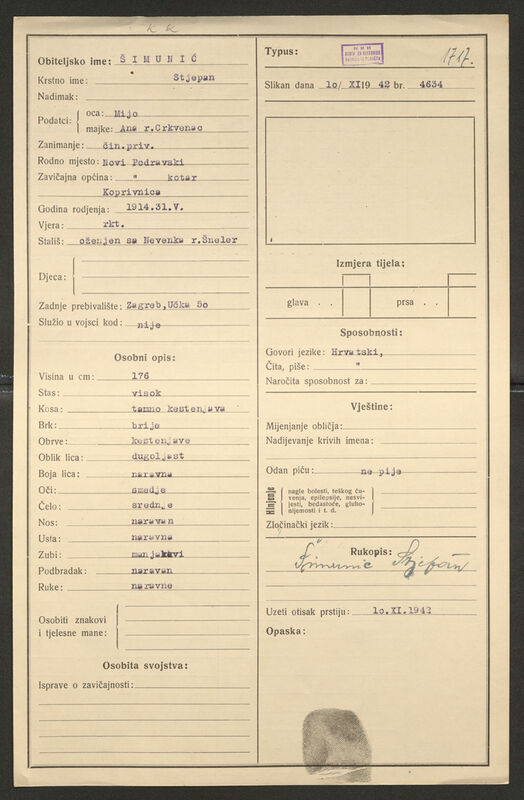 K K
Obiteljsko ime: ŠIMUNIĆ
Krstno ime: Stjepan
Nadimak:
Podatci: { oca: Mijo
majke: Ana r.Crkvenac
Zanimanje: čin.priv.
Rodno mjesto: Novi Podravski
Zavičajna općina: " kotar
Koprivnica
Godina rodjenja: 1914.31.V.
Vjera: rkt.
Stališ: oženjen sa Nevenka r.Šneler
Djeca: {
Zadnje prebivalište: Zagreb,Učka 5o
Služio u vojsci kod: nije
Osobni opis:
Visina u cm: 176
Stas: visok
Kosa: tamno kestenjava
Brk: brije
Obrve: kestenjave
Oblik lica: dugoljast
Boja lica: naravna
Oči: smedje
Čelo: srednje
Nos: naravan
Usta: naravna
Zubi: manjkavi
Podbradak: naravan
Ruke: naravne
Osobiti znakovi
i tjelesne mane: {
Osobita svojstva:
Isprave o zavičajnosti:
Typus:
1717.
Slikan dana 1o/ XI 19 42 br. 4634
Izmjera tijela:
glava . . prsa . .
Sposobnosti:
Govori jezike: Hrvatski,
Čita, piše: "
Naročita sposobnost za:
Vještine:
Mijenjanje obličja:
Nadijevanje krivih imena:
Odan piću: ne pije
Hinjenje { nagle bolesti, teškog ću-
venja, epilepsije, nesvi-
jesti, bedastoće, gluho-
nijemosti i t. d. }
Zločinački jezik:
Rukopis:
Šimunić Stjepan
Uzeti otisak prstiju: 1o.XI.1942
Opaska: